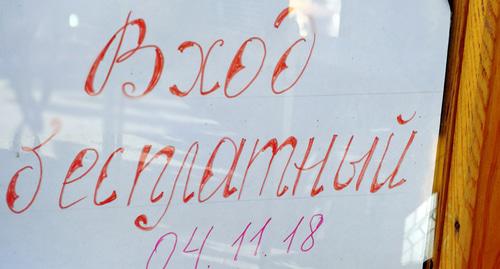 Вход
бесплатный
04.11.18